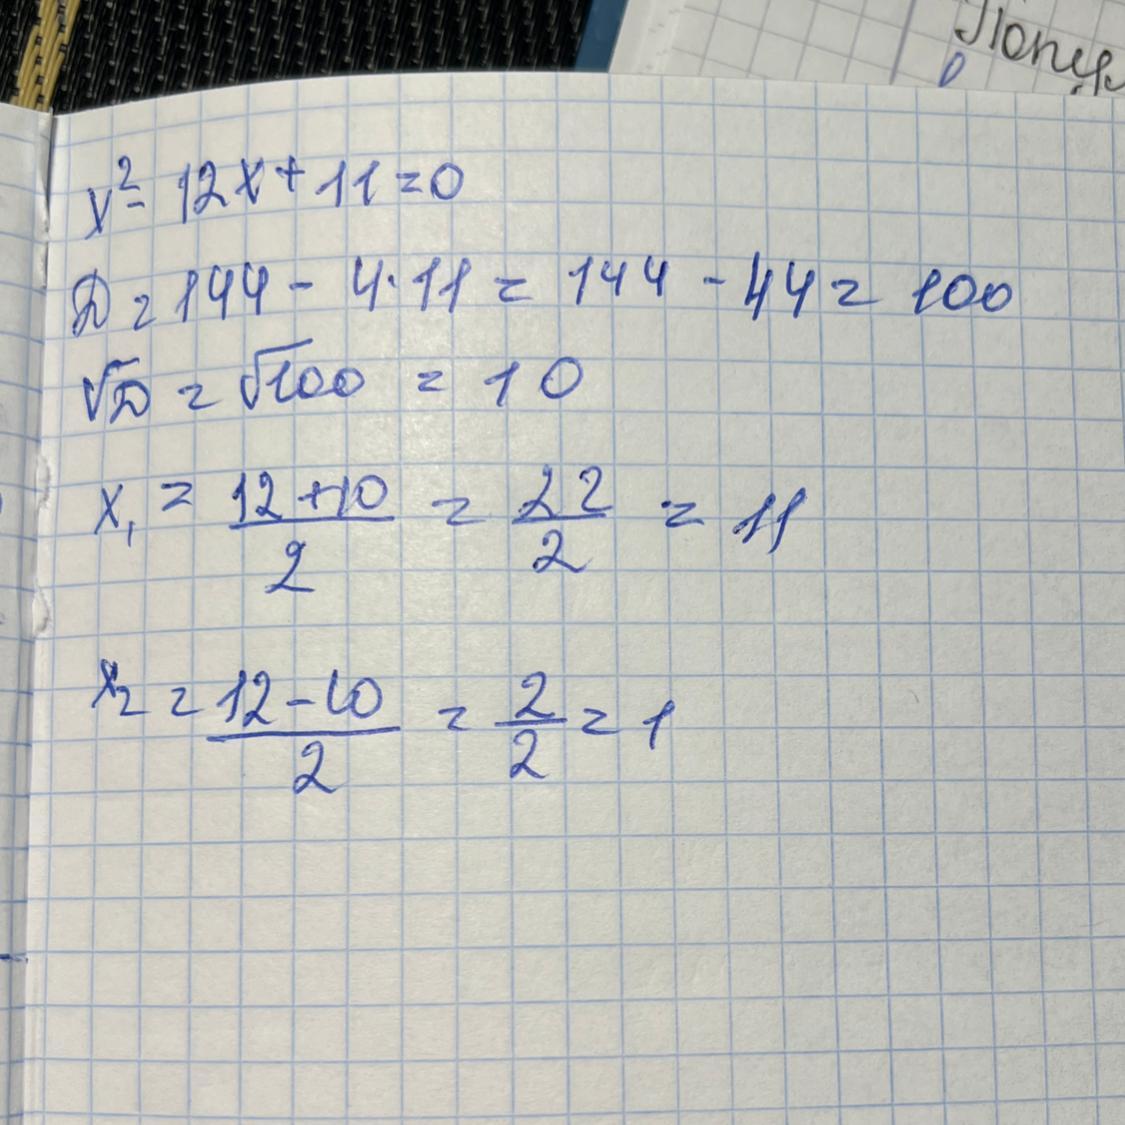 x² - 12x + 11 = 0
D = 144 - 4·11 = 144 - 44 = 100
√D = √100 = 10
x₁ = (12+10)/2 = 22/2 = 11
x₂ = (12-10)/2 = 2/2 = 1